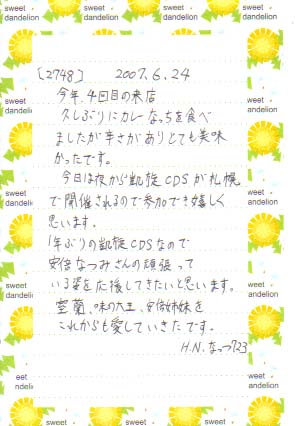 sweet dandelion
sweet dandelion
sweet dandelion
[2748] 2007.6.24
今年、4回目の来店
久しぶりにカレーなっちを食べ
ましたが辛さがありとても美味
かったです。
今日は夜から凱旋CDSが札幌
で開催されるので参加でき嬉しく
思います。
1年ぶりの凱旋CDSなので
安倍なつみさんの頑張って
いる姿を応援してきたいと思います。
室蘭、味の大王、安倍姉妹を
これからも愛していきたです。
H.N.なっつ723